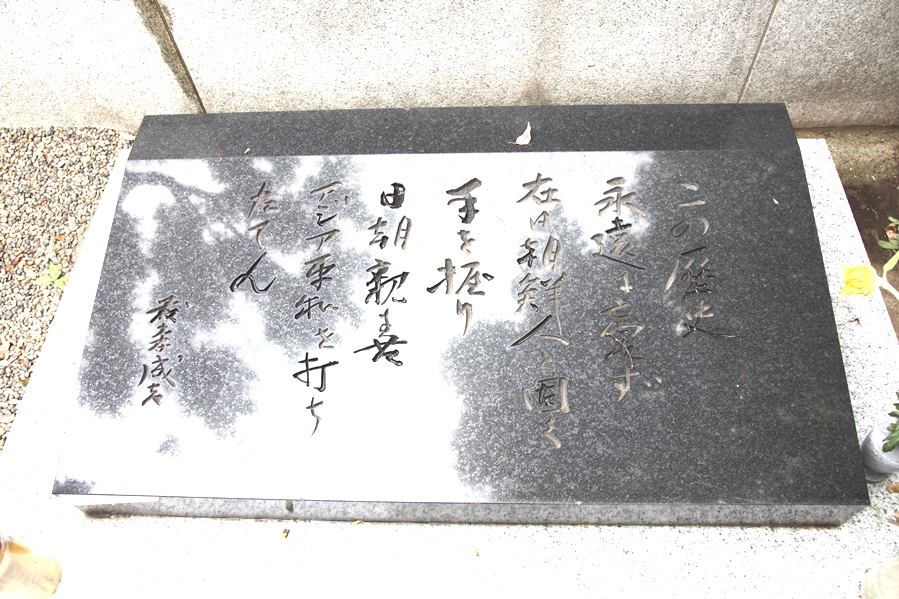 この歴史
永遠に忘れず
在日朝鮮人と固く
手を握り
日朝親善
アジア平和を打ち
たてん
藤森成吉